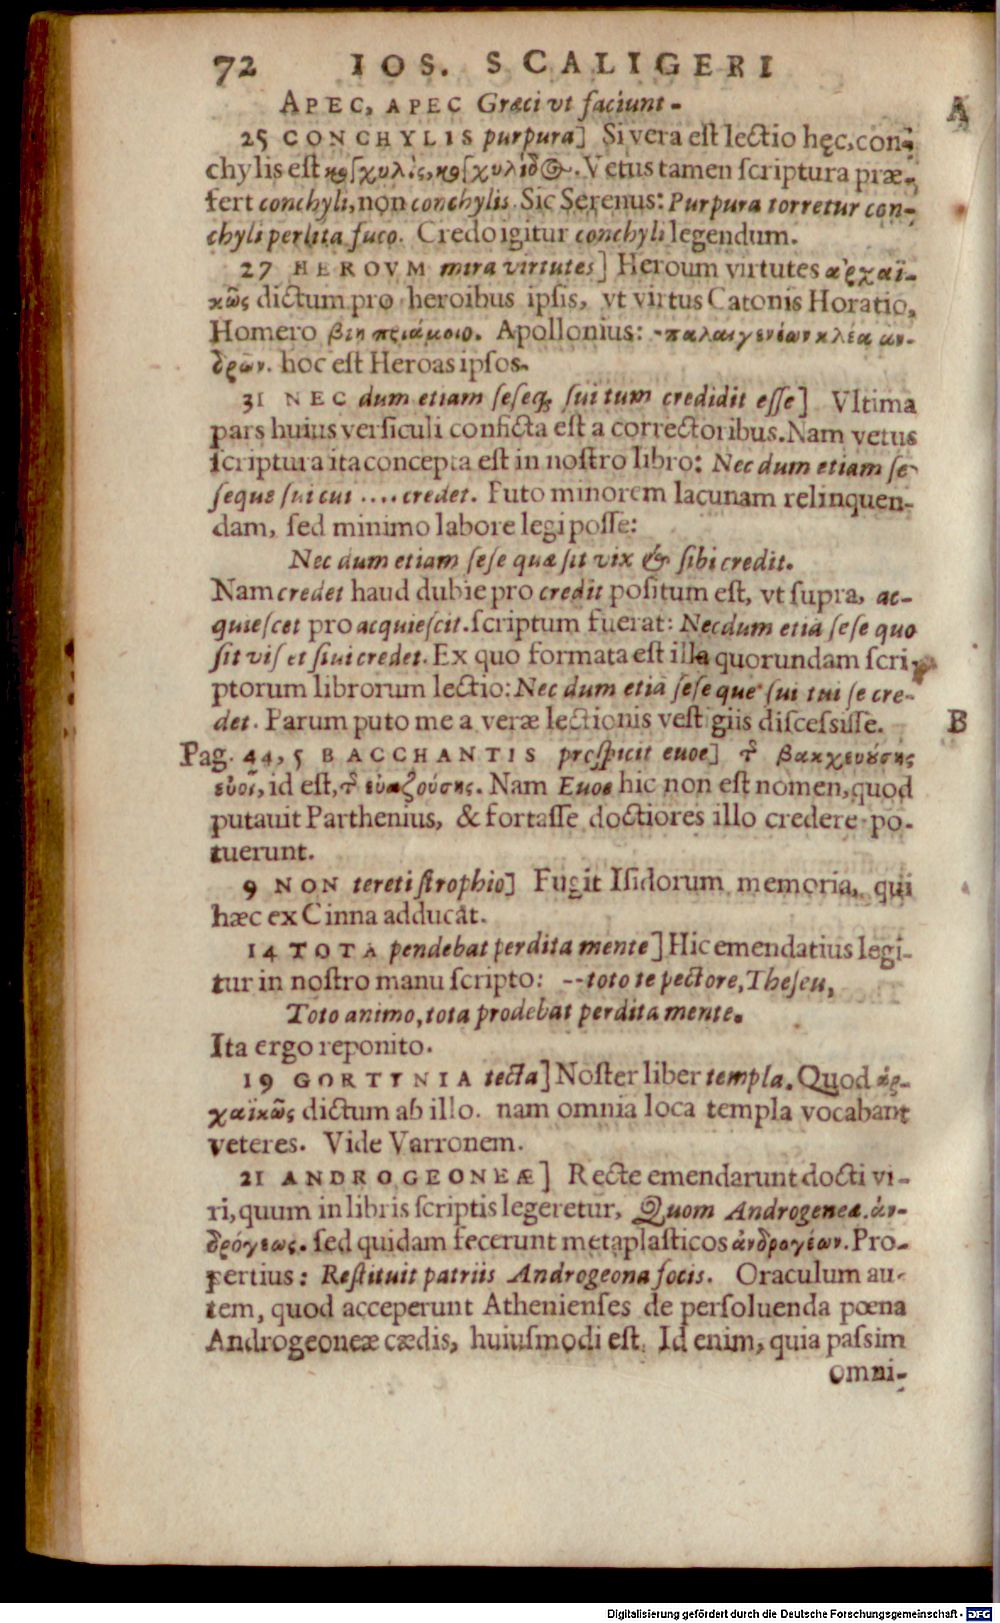 72 IOS. SCALIGERI
APEC, APEC Græci vt faciunt-
A
25 CONCHYLIS purpura] Si vera est lectio hęc, con-
chylis est κογχυλὶς, κογχυλίδος. Vetus tamen scriptura præ-
fert conchyli, non conchylis. Sic Serenus: Purpura torretur con-
chyli perlita fuco. Credo igitur conchyli legendum.
27 HEROVM mira virtutes] Heroum virtutes ἀρχαϊ-
κῶς dictum pro heroibus ipsis, vt virtus Catonis Horatio,
Homero βίη πριάμοιο. Apollonius: -παλαιγενέων κλέα ἀν-
δρῶν. hoc est Heroas ipsos.
31 NEC dum etiam seseq; sui tum credidit esse] Vltima
pars huius versiculi conficta est a correctoribus. Nam vetus
scriptura ita concepta est in nostro libro: Nec dum etiam se-
seque sui cui .... credet. Puto minorem lacunam relinquen-
dam, sed minimo labore legi posse:
Nec dum etiam sese quæ sit vix & sibi credit.
Nam credet haud dubie pro credit positum est, vt supra, ac-
quiescet pro acquiescit. scriptum fuerat: Necdum etiā sese quo
sit vis et siui credet. Ex quo formata est illa quorundam scri-
ptorum librorum lectio: Nec dum etiā sese que sui tui se cre-
det. Parum puto me a veræ lectionis vestigiis discessisse.
B
Pag. 44, 5 BACCHANTIS prospicit euoe] τ͂ βακχευούσης
εὐοῖ, id est, τ͂ εὐαζούσης. Nam Euoe hic non est nomen, quod
putauit Parthenius, & fortasse doctiores illo credere po-
tuerunt.
9 NON tereti strophio] Fugit Isidorum memoria, qui
hæc ex Cinna adducat.
14 TOTA pendebat perdita mente] Hic emendatius legi-
tur in nostro manu scripto: --toto te pectore, Theseu,
Toto animo, tota prodebat perdita mente.
Ita ergo reponito.
19 GORTINIA tecta] Noster liber templa. Quod ἀρ-
χαϊκῶς dictum ab illo. nam omnia loca templa vocabant
veteres. Vide Varronem.
21 ANDROGEONEÆ] Recte emendarunt docti vi-
ri, quum in libris scriptis legeretur, Quom Androgenea. ἀν-
δρόγεως. sed quidam fecerunt metaplasticos ἀνδρογέων. Pro-
pertius: Restituit patriis Androgeona focis. Oraculum au-
tem, quod acceperunt Athenienses de persoluenda pœna
Androgeoneæ cædis, huiusmodi est. Id enim, quia passim
omni-
Digitalisierung gefördert durch die Deutsche Forschungsgemeinschaft - DFG